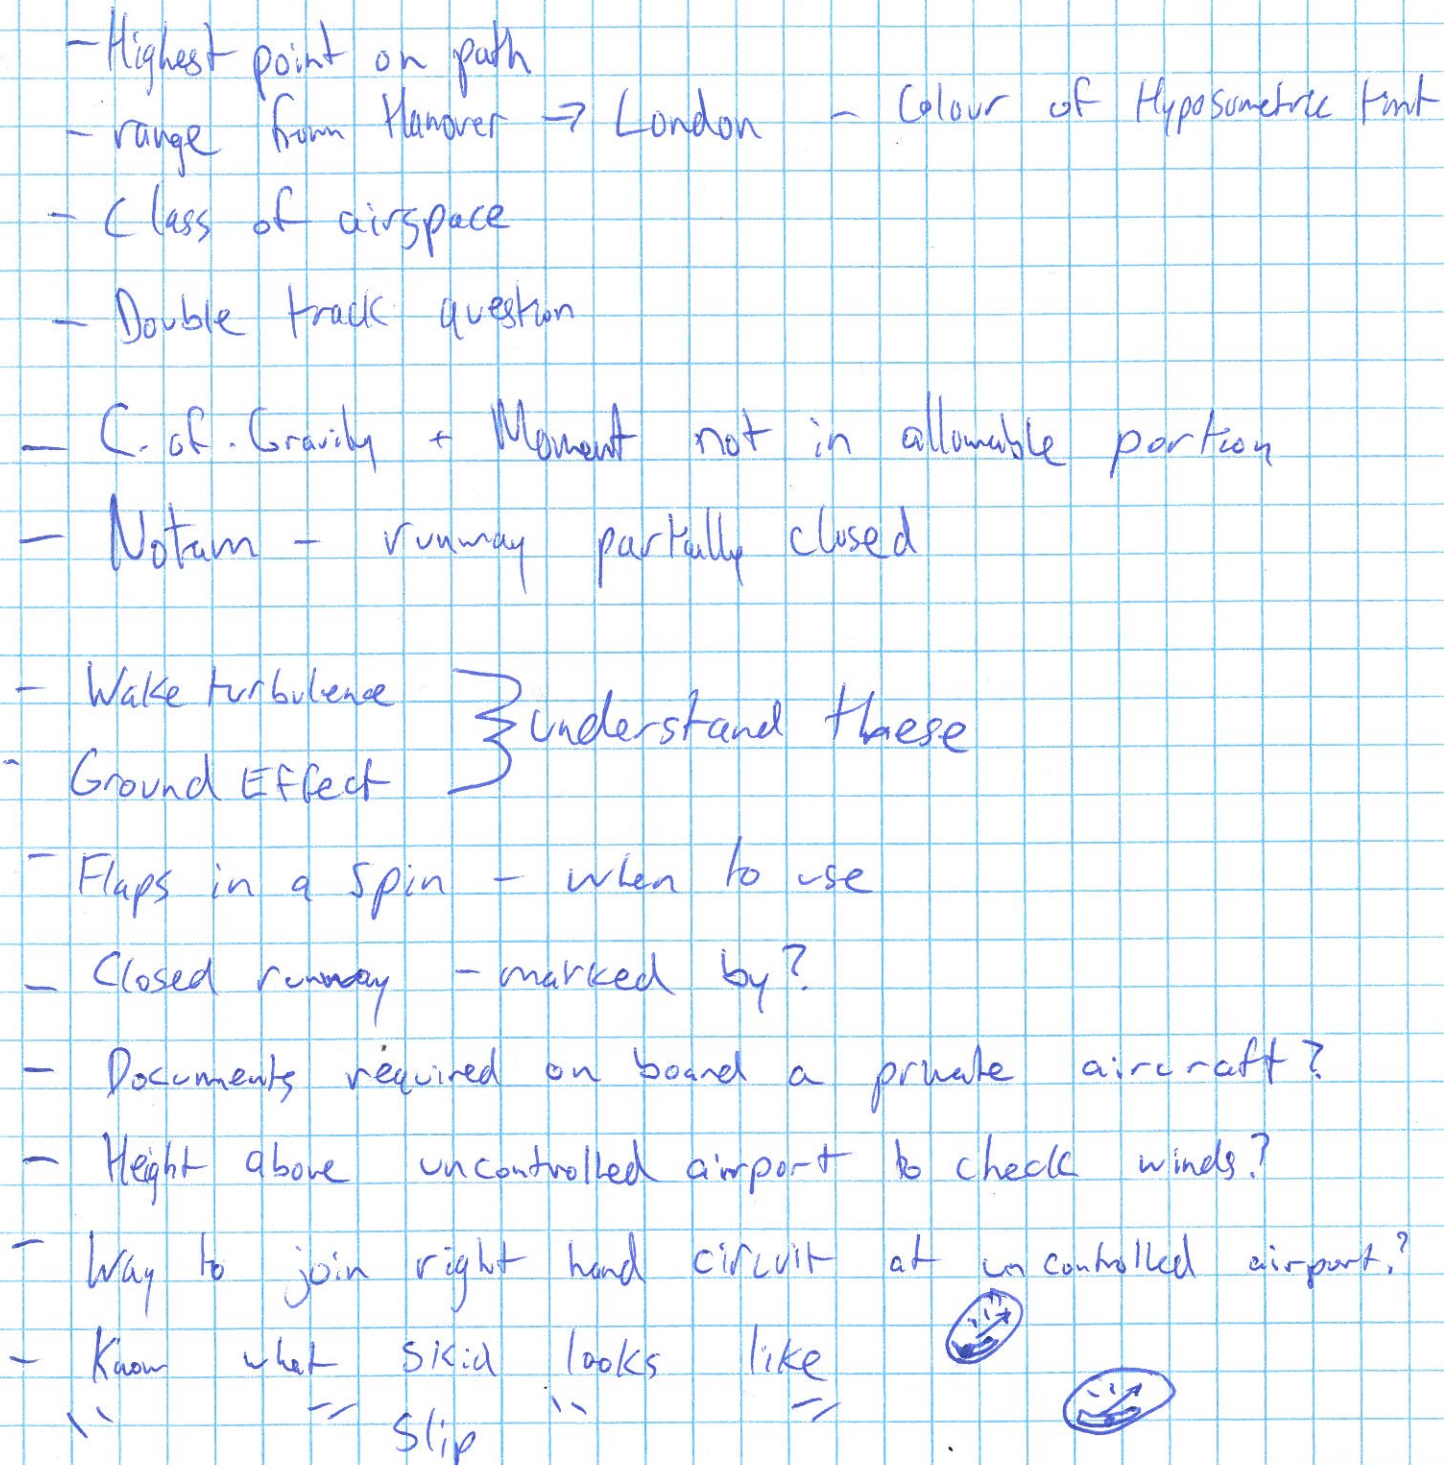 - Highest point on path
- range from Hanover → London - Colour of Hyposometric tint
- Class of airspace
- Double track question
- C. of. Gravity + Moment not in allowable portion
- Notam - runway partially closed
- Wake turbulence
} understand these
- Ground Effect
- Flaps in a spin - when to use
- Closed runway - marked by?
- Documents required on board a private aircraft?
- Height above uncontrolled airport to check winds?
- Way to join right hand circuit at uncontrolled airport?
- Know what skid looks like
" = slip " =